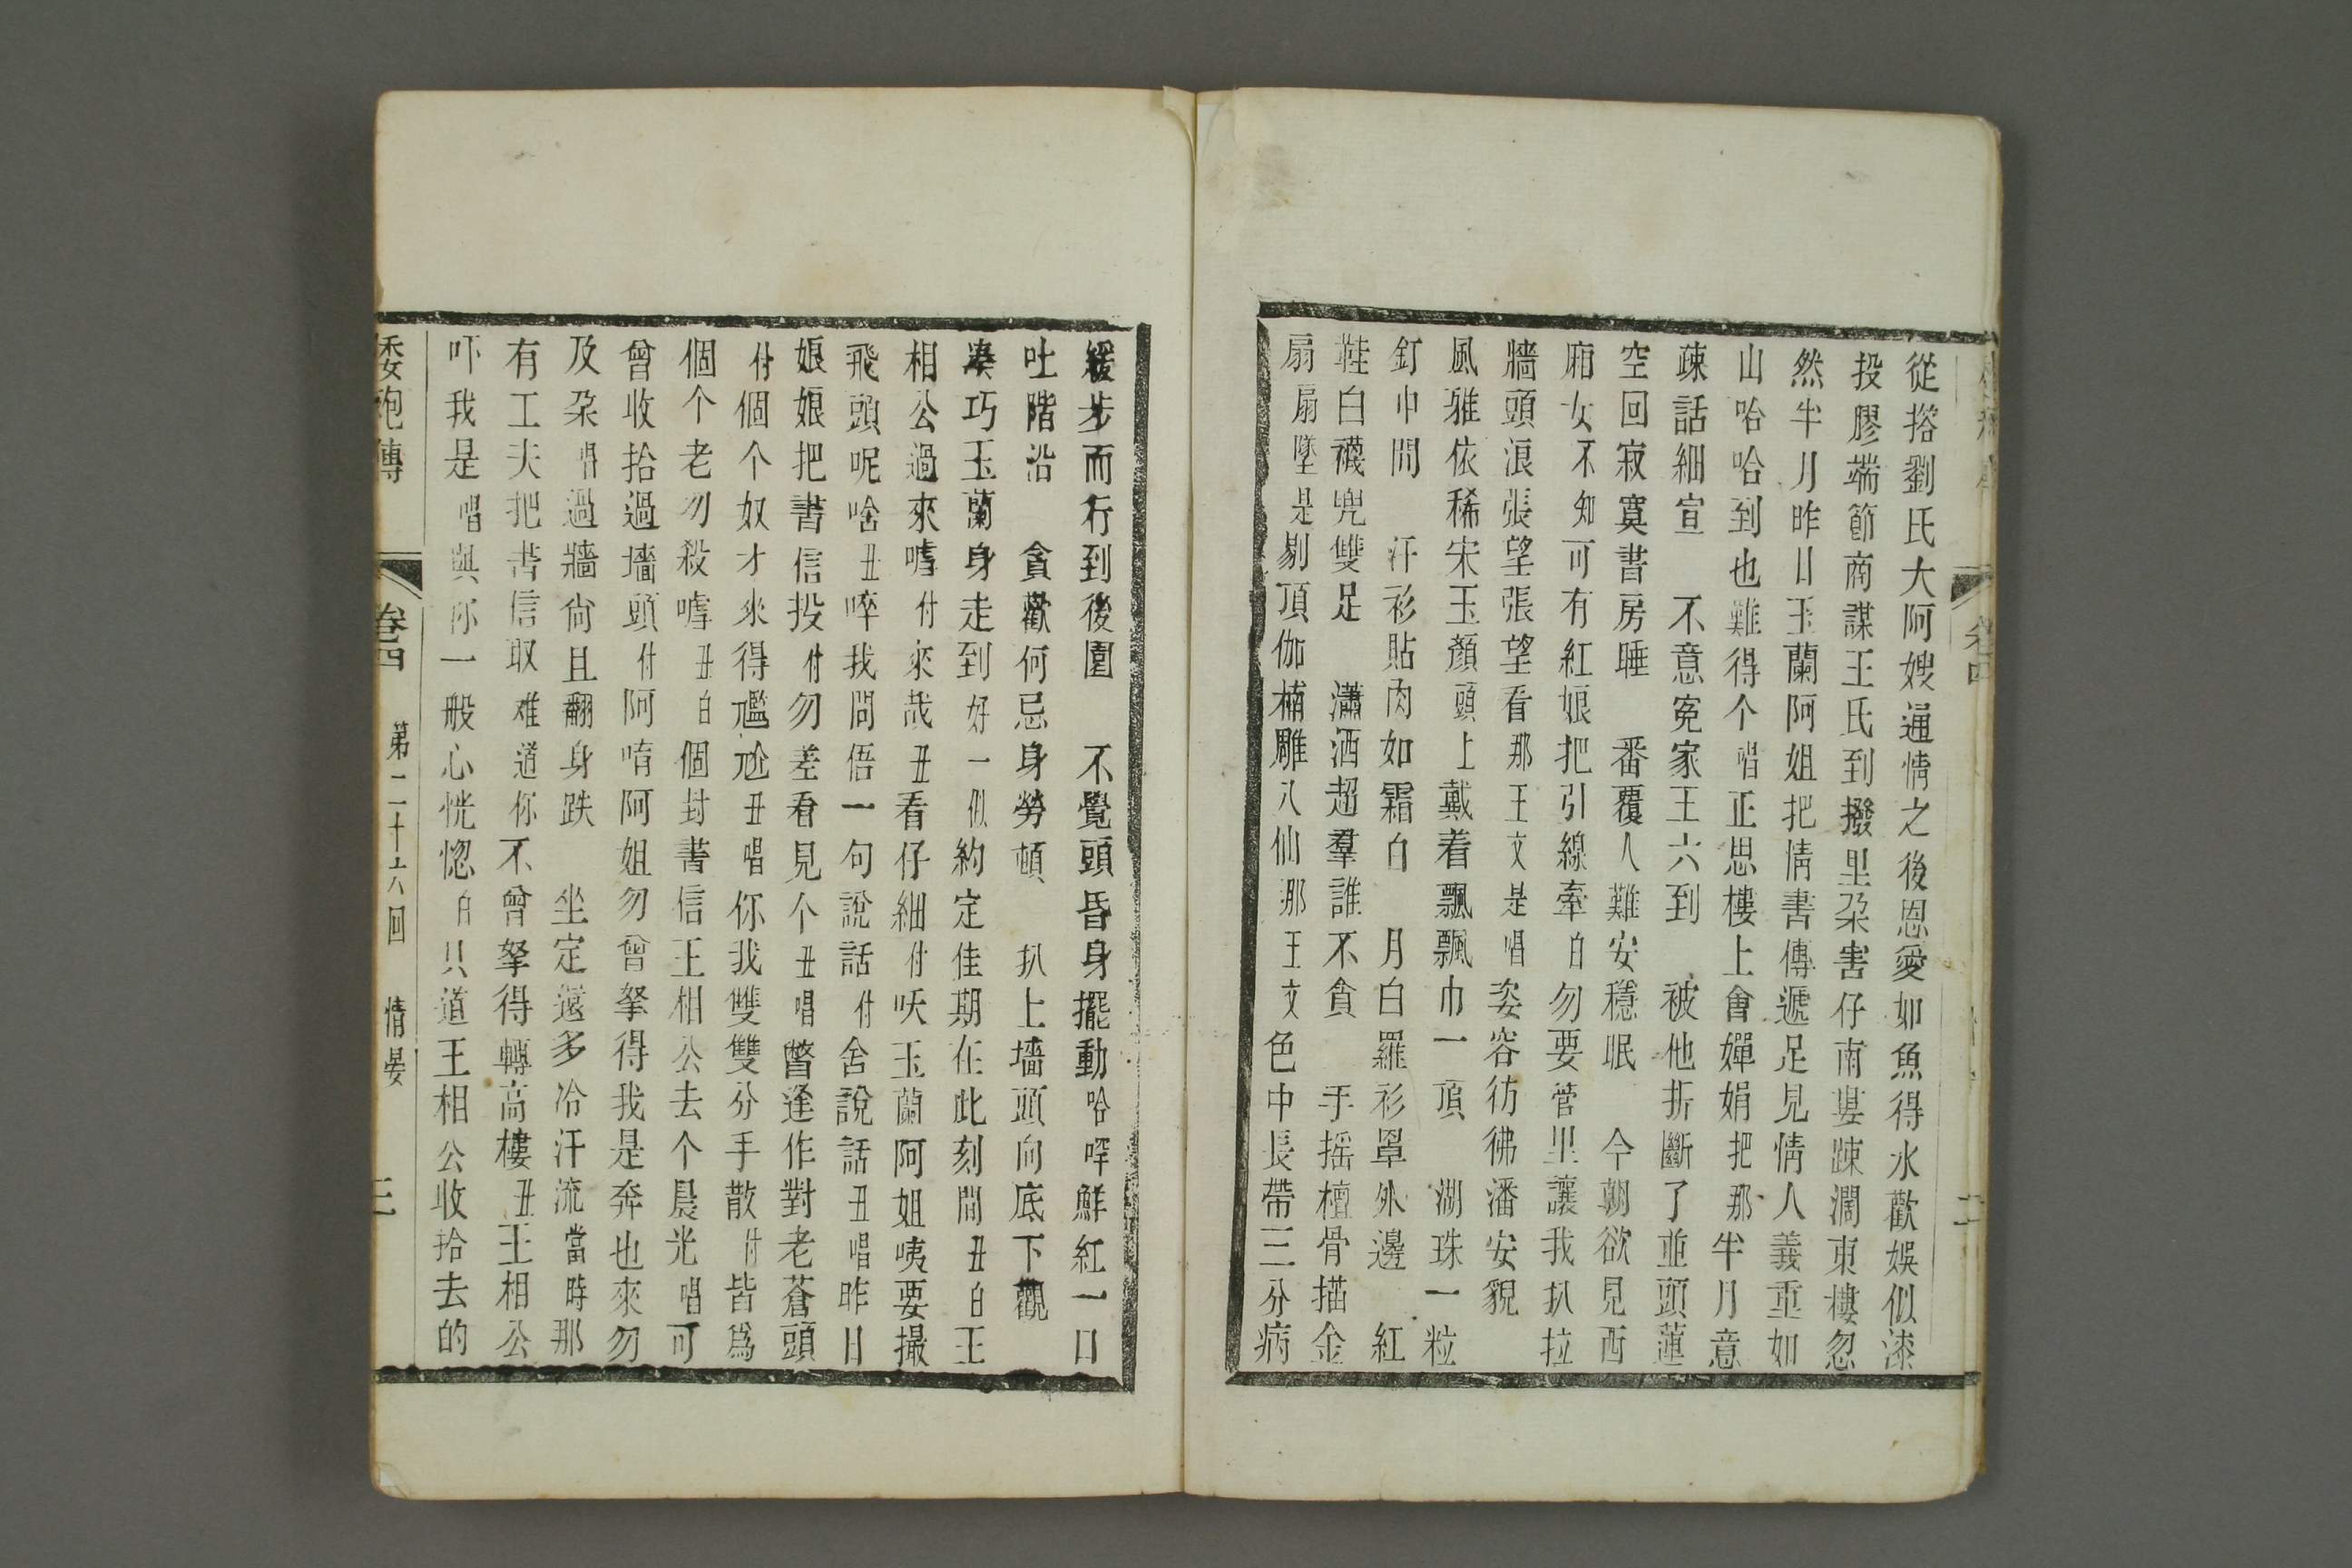 從搭劉氏大阿嫂通情之後恩愛如魚得水歡娛似漆
投膠端節商謀王氏到撥里朶害仔南㜑踈濶東樓忽
然半月昨日玉蘭阿姐把情書傳遞足見情人義重如
山哈哈到也難得个唱正思樓上會嬋娟把那半月意
疎話細宣 不意寃家王六到 被他折斷了並頭蓮
空回寂寞書房睡 番覆人難安穩眠 今朝欲見西
廂女不知可有紅娘把引線牽白勿要管里讓我扒拉
牆頭浪張望張望看那王文是唱姿容彷彿潘安貌
風雅依稀宋玉顏頭上戴着飄飄巾一頂 湖珠一粒
釘中間 汗衫貼肉如霜白 月白羅衫罩外邊 紅
鞋白襪兜雙足 瀟洒超羣誰不貪 手摇檀骨描金
扇扇墜是剔頂伽楠雕八仙那王文色中長帶三分病
緩步而行到後園 不覺頭昏身擺動哈啐鮮紅一口
吐階沿 貪歡何忌身勞頓 扒上墻頭向底下觀
湊巧玉蘭身走到好一似約定佳期在此刻間丑白王
相公過來嘑付來哉丑看仔細付吷玉蘭阿姐咦要撮
飛頭呢啥丑啐我問俉一句說話付舍說話丑唱昨日
娘娘把書信投付勿差看見个丑唱瞥逢作對老蒼頭
付個个奴才來得尷尬丑唱你我雙雙分手散付皆爲
個个老勿殺嘑丑白個封書信王相公去个晨光唱可
曾收拾過墻頭付阿唷阿姐勿曾拏得我是奔也來勿
及朶唱過牆尙且翻身跌 坐定還多冷汗流當時那
有工夫把書信取难道你不曾拏得轉高樓丑王相公
吓我是唱與你一般心恍惚白只道王相公收拾去的
倭袍傳 卷四 第二十六回 情晏 三